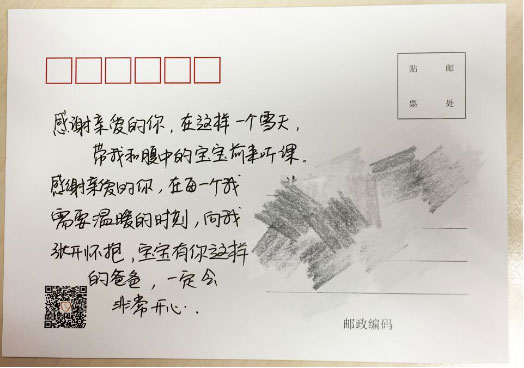 贴 邮
票 处
感谢亲爱的你，在这样一个雪天，
带我和腹中的宝宝前来听课。
感谢亲爱的你，在每一个我
需要温暖的时刻，向我
张开怀抱，宝宝有你这样
的爸爸，一定会
非常开心..
邮政编码